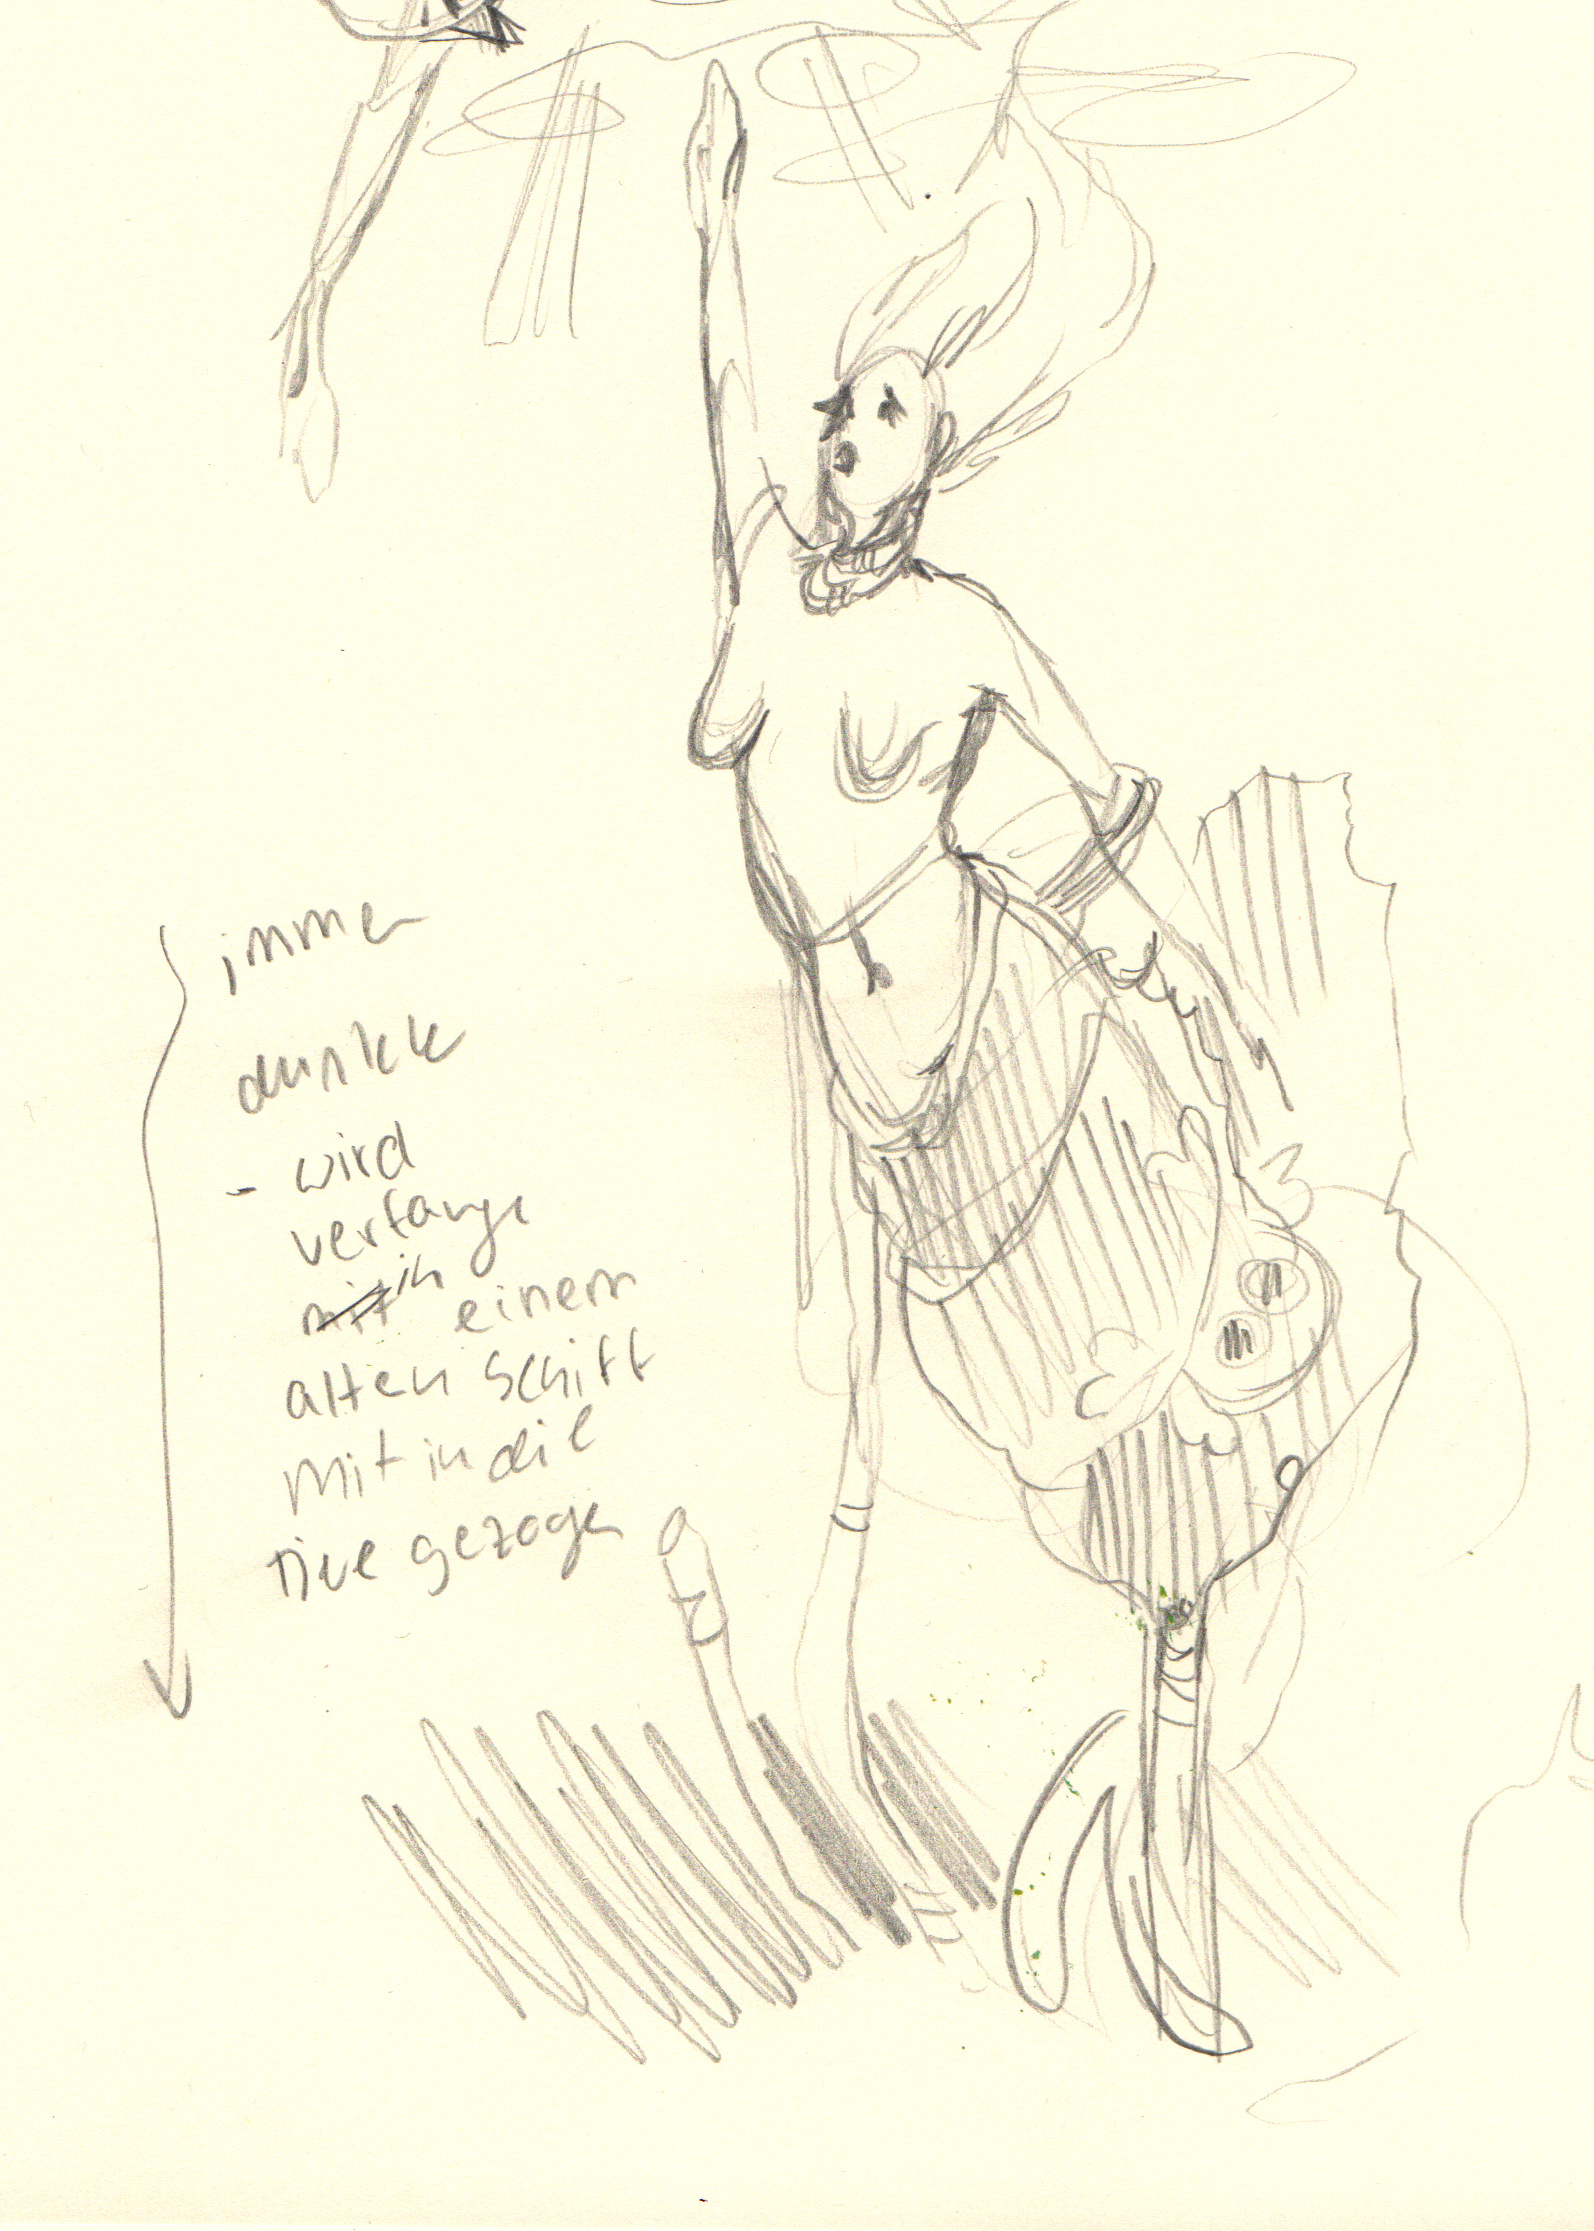 immer
dunkle
- wird
verfange
mit in einem
alten schiff
mit in die
tive gezogen